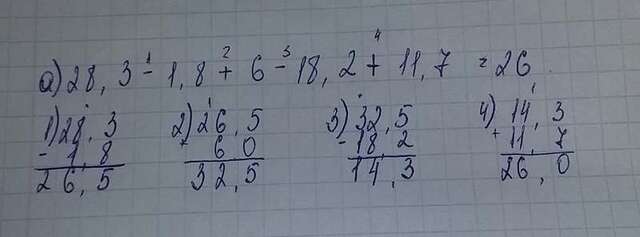 а) 28,3 - 1,8 + 6 - 18,2 + 11,7 = 26.
1 2 3 4
1) 28,3 2) 26,5 3) 32,5 4) 14,3
- 1,8 + 6 0 - 18,2 + 11,7
26,5 32,5 14,3 26,0